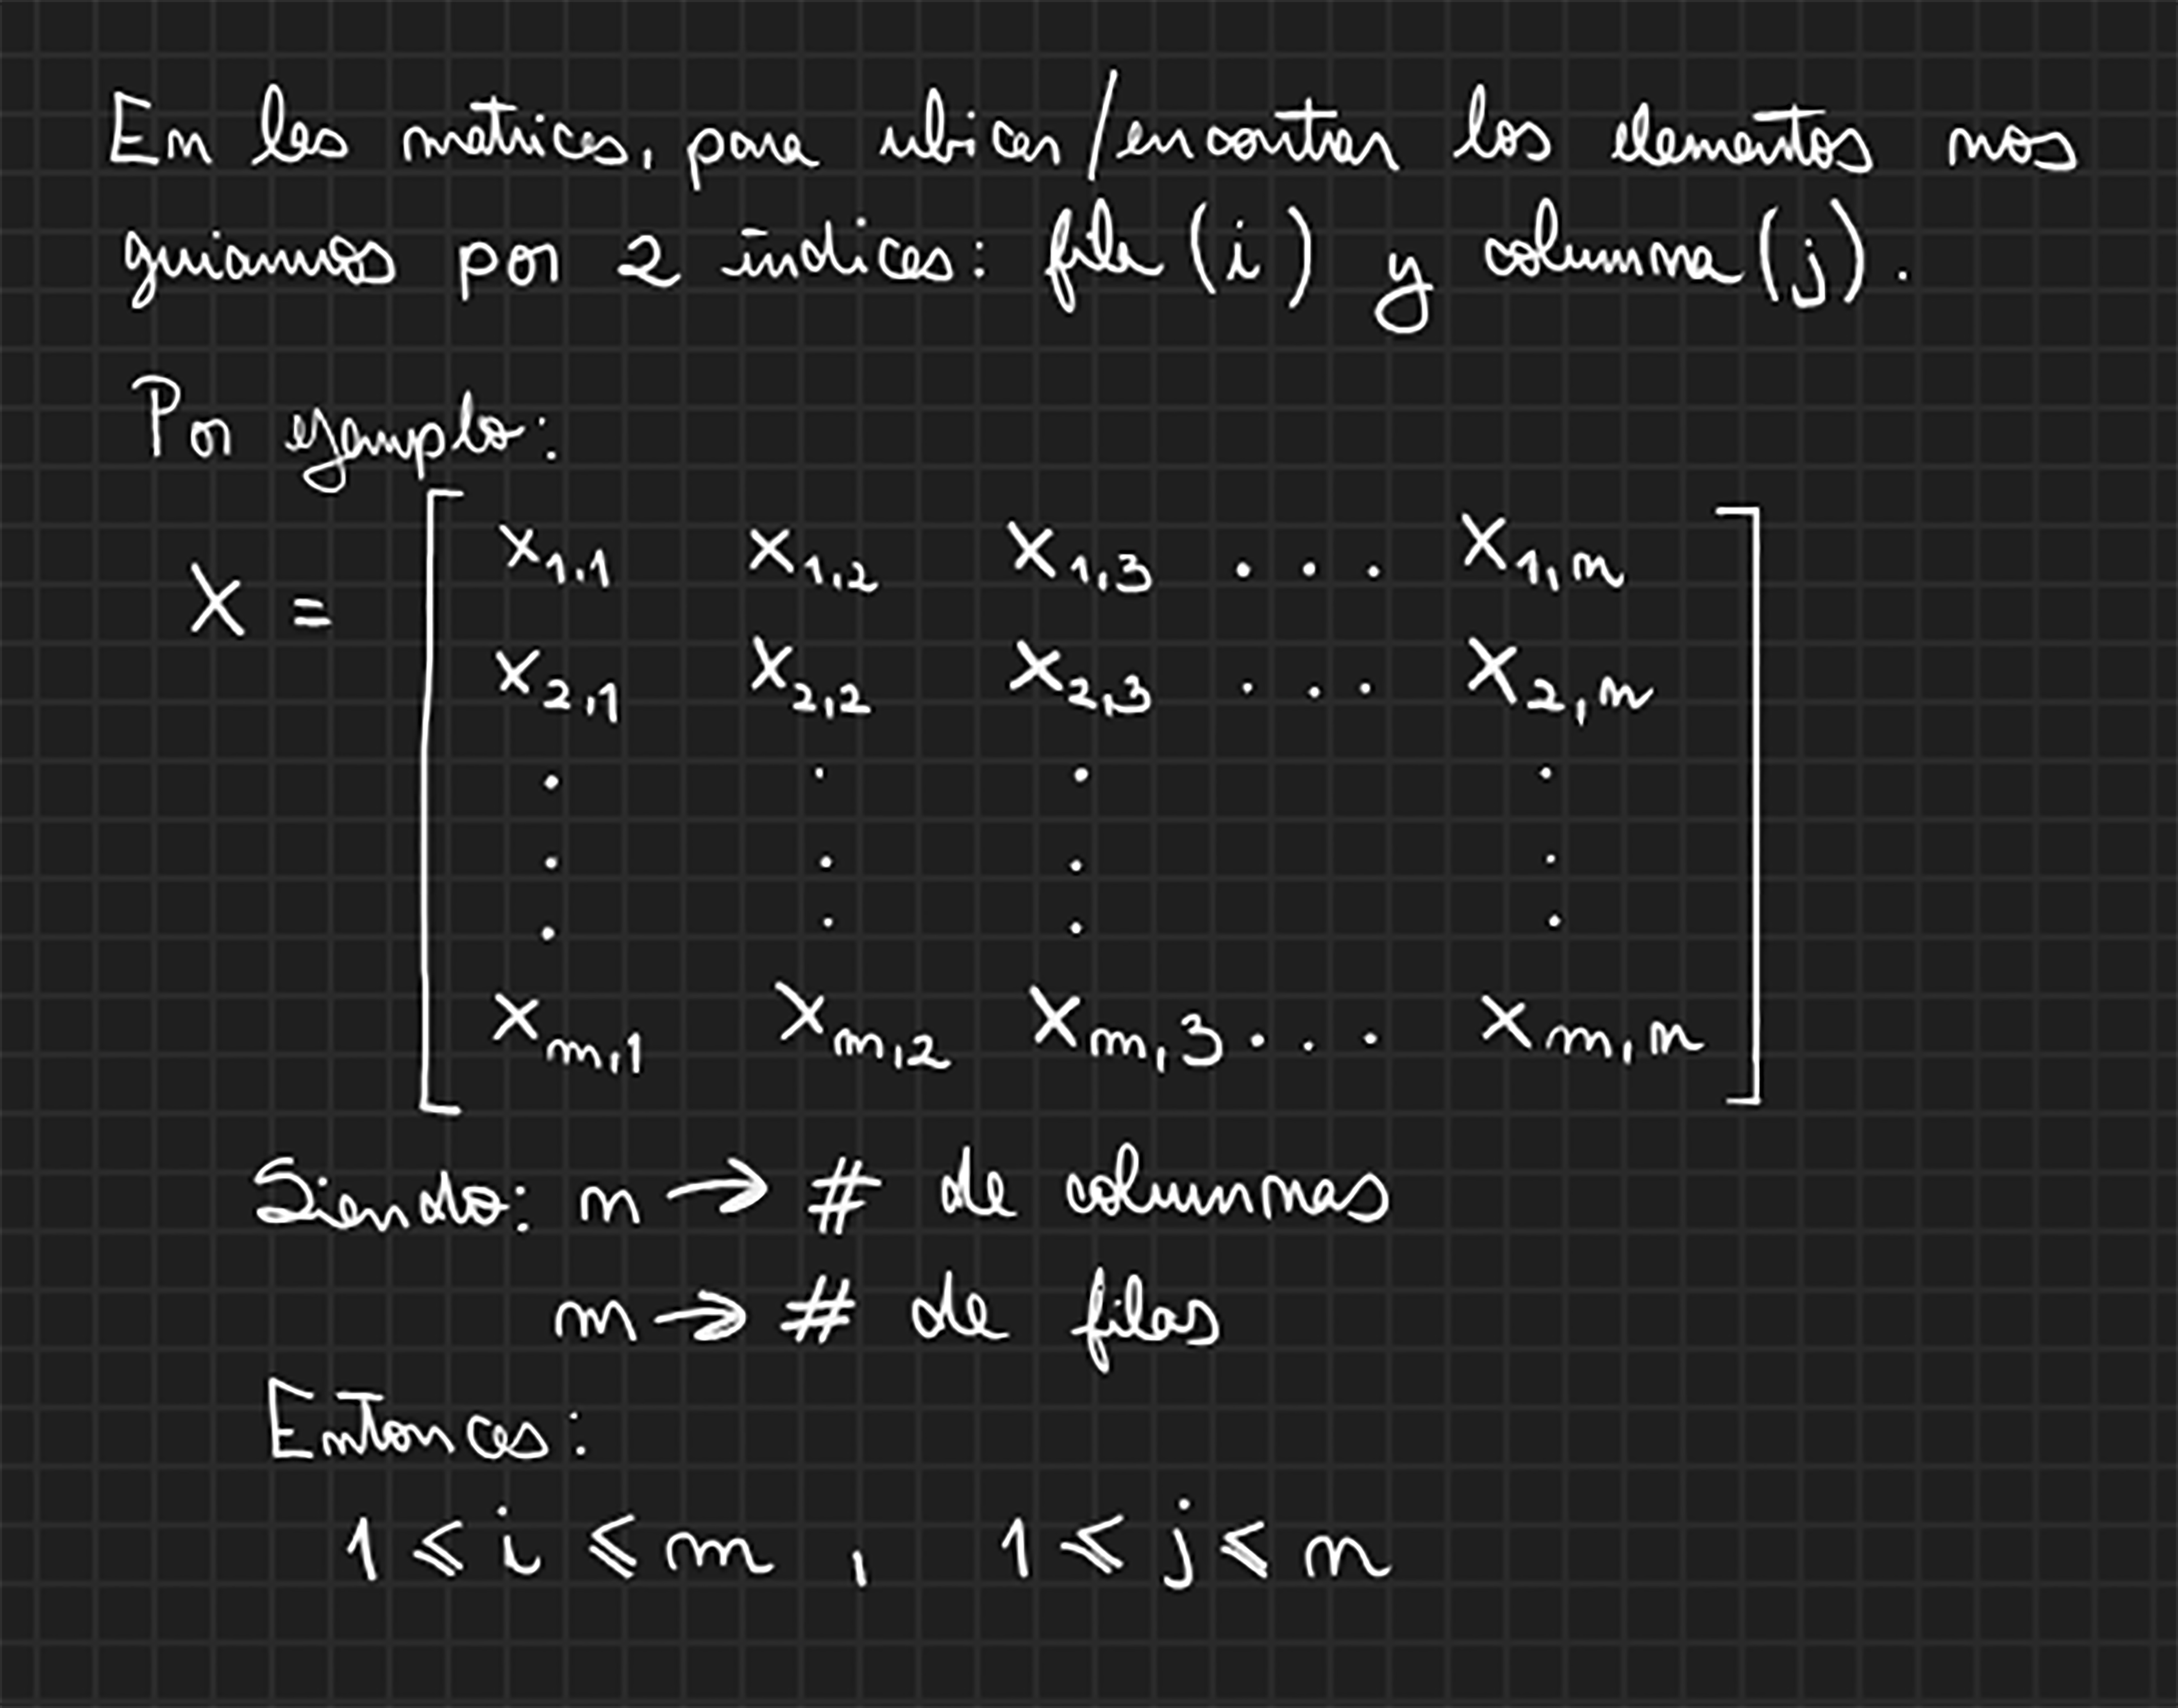 En las matrices, para ubicar/encontrar los elementos nos
guiamos por 2 índices: fila (i) y columna (j).
Por ejemplo:
X = [ x1,1 x1,2 x1,3 . . . x1,n
x2,1 x2,2 x2,3 . . . x2,n
. . . .
. . . .
. . . .
xm,1 xm,2 xm,3 . . . xm,n ]
Siendo: n → # de columnas
m → # de filas
Entonces:
1 ⩽ i ⩽ m , 1 ⩽ j ⩽ n